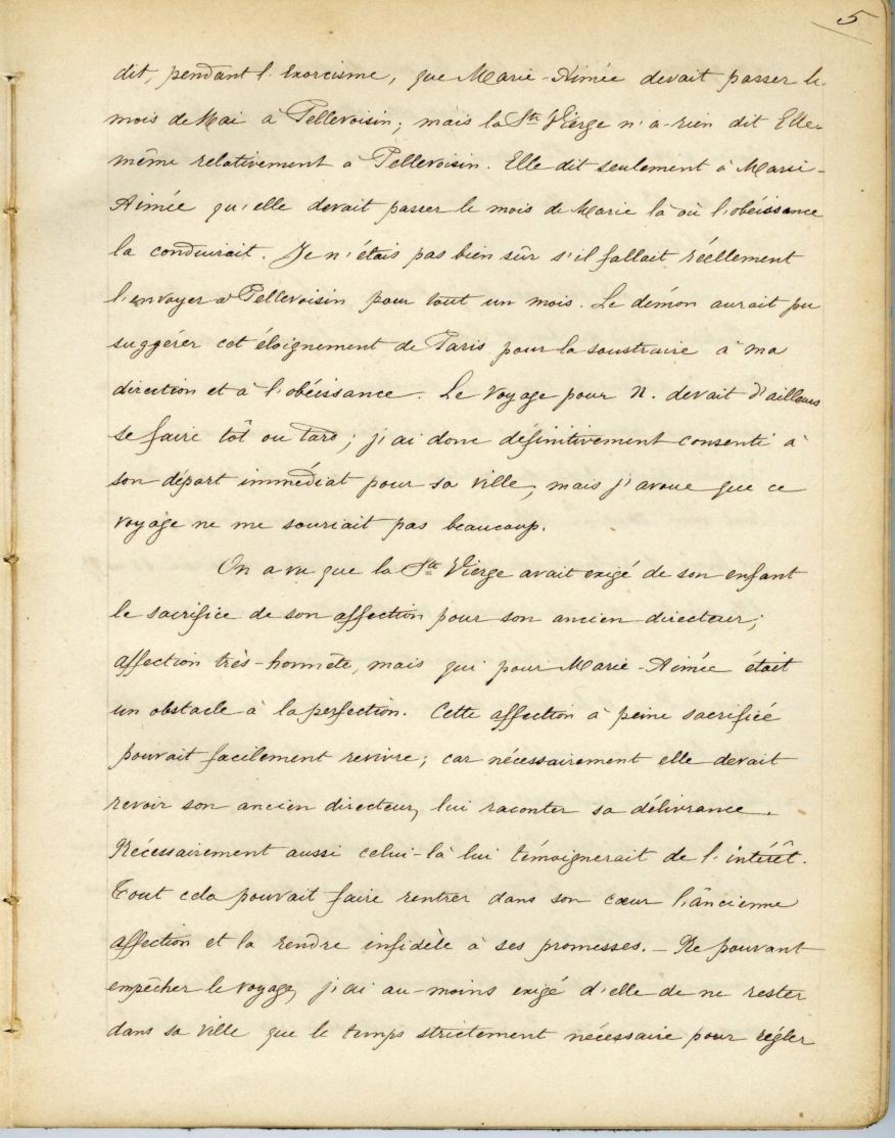 5
dit, pendant l'exorcisme, que Marie-Aimée devait passer le
mois de Mai à Pellevoisin; mais la Ste Vierge n'a rien dit Elle-
même relativement à Pellevoisin. Elle dit seulement à Marie-
Aimée qu'elle devait passer le mois de Marie là où l'obéissance
la conduirait. Je n'étais pas bien sûr s'il fallait réellement
l'envoyer à Pellevoisin pour tout un mois. Le démon aurait pu
suggérer cet éloignement de Paris pour la soustraire à ma
direction et à l'obéissance. Le voyage pour N. devait d'ailleurs
se faire tôt ou tard; j'ai donc définitivement consenti à
son départ immédiat pour sa ville, mais j'avoue que ce
voyage ne me souriait pas beaucoup.
On a vu que la Ste Vierge avait exigé de son enfant
le sacrifice de son affection pour son ancien directeur;
affection très-honnête, mais qui pour Marie-Aimée était
un obstacle à la perfection. Cette affection à peine sacrifiée
pouvait facilement revivre; car nécessairement elle devait
revoir son ancien directeur, lui raconter sa délivrance.
Nécessairement aussi celui-là lui témoignerait de l'intérêt.
Tout cela pouvait faire rentrer dans son cœur l'ancienne
affection et la rendre infidèle à ses promesses. — Ne pouvant
empêcher le voyage, j'ai au-moins exigé d'elle de ne rester
dans sa ville que le temps strictement nécessaire pour régler